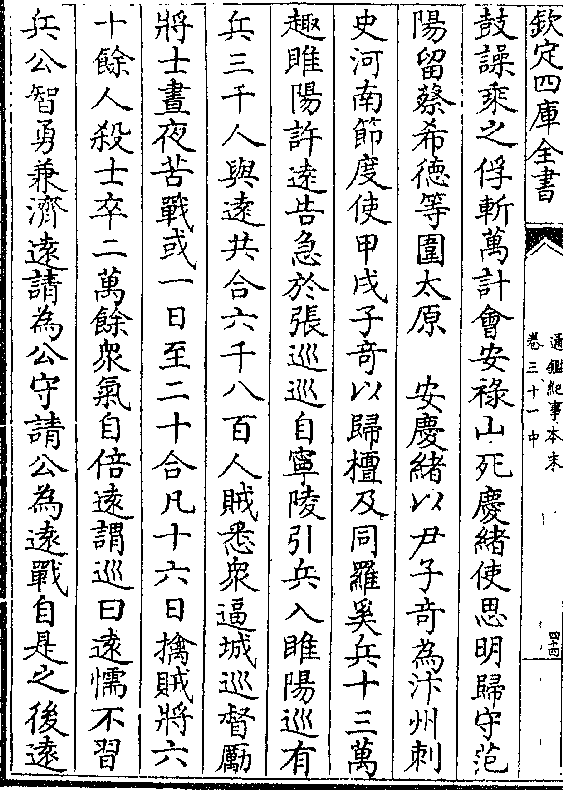 欽定四庫全書
通鑑紀事本末
卷三十一中
四十四
鼓譟乘之俘斬萬計會安祿山死慶緒使思明歸守范
陽留蔡希德等圍太原　安慶緒以尹子竒為汴州刺
史河南節度使甲戌子竒以歸檀及同羅奚兵十三萬
趣睢陽許逺告急於張巡巡自寧陵引兵入睢陽巡有
兵三千人與逺共合六千八百人賊悉衆逼城巡督勵
將士晝夜苦戰或一日至二十合凡十六日擒賊將六
十餘人殺士卒二萬餘衆氣自倍逺謂巡曰逺懦不習
兵公智勇兼濟逺請為公守請公為逺戰自是之後逺